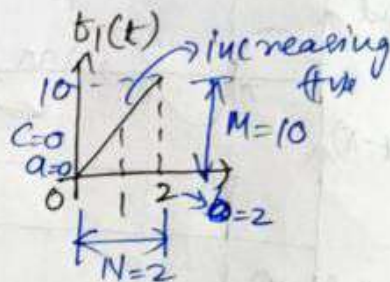 t₁(t)
increasing
10
M=10
C=0
a=0
0 1 2 =2
N=2